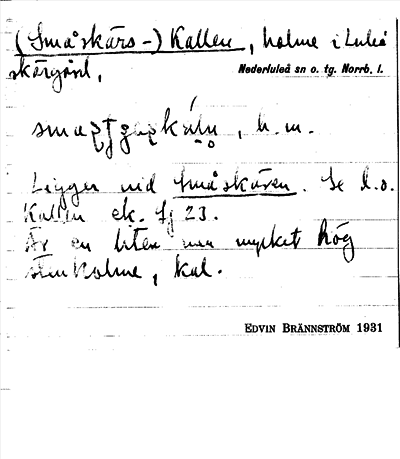 (Småskärs-) Kallen, holme i Luleå
skärgård,
Nederluleå sn o. tg. Norrb. l.
h. m.
Ligger vid Småskären. Se l.o.
Kallen ek. bl 23.
Är en liten men mycket hög
stenholme, kal.
EDVIN BRÄNNSTRÖM 1931